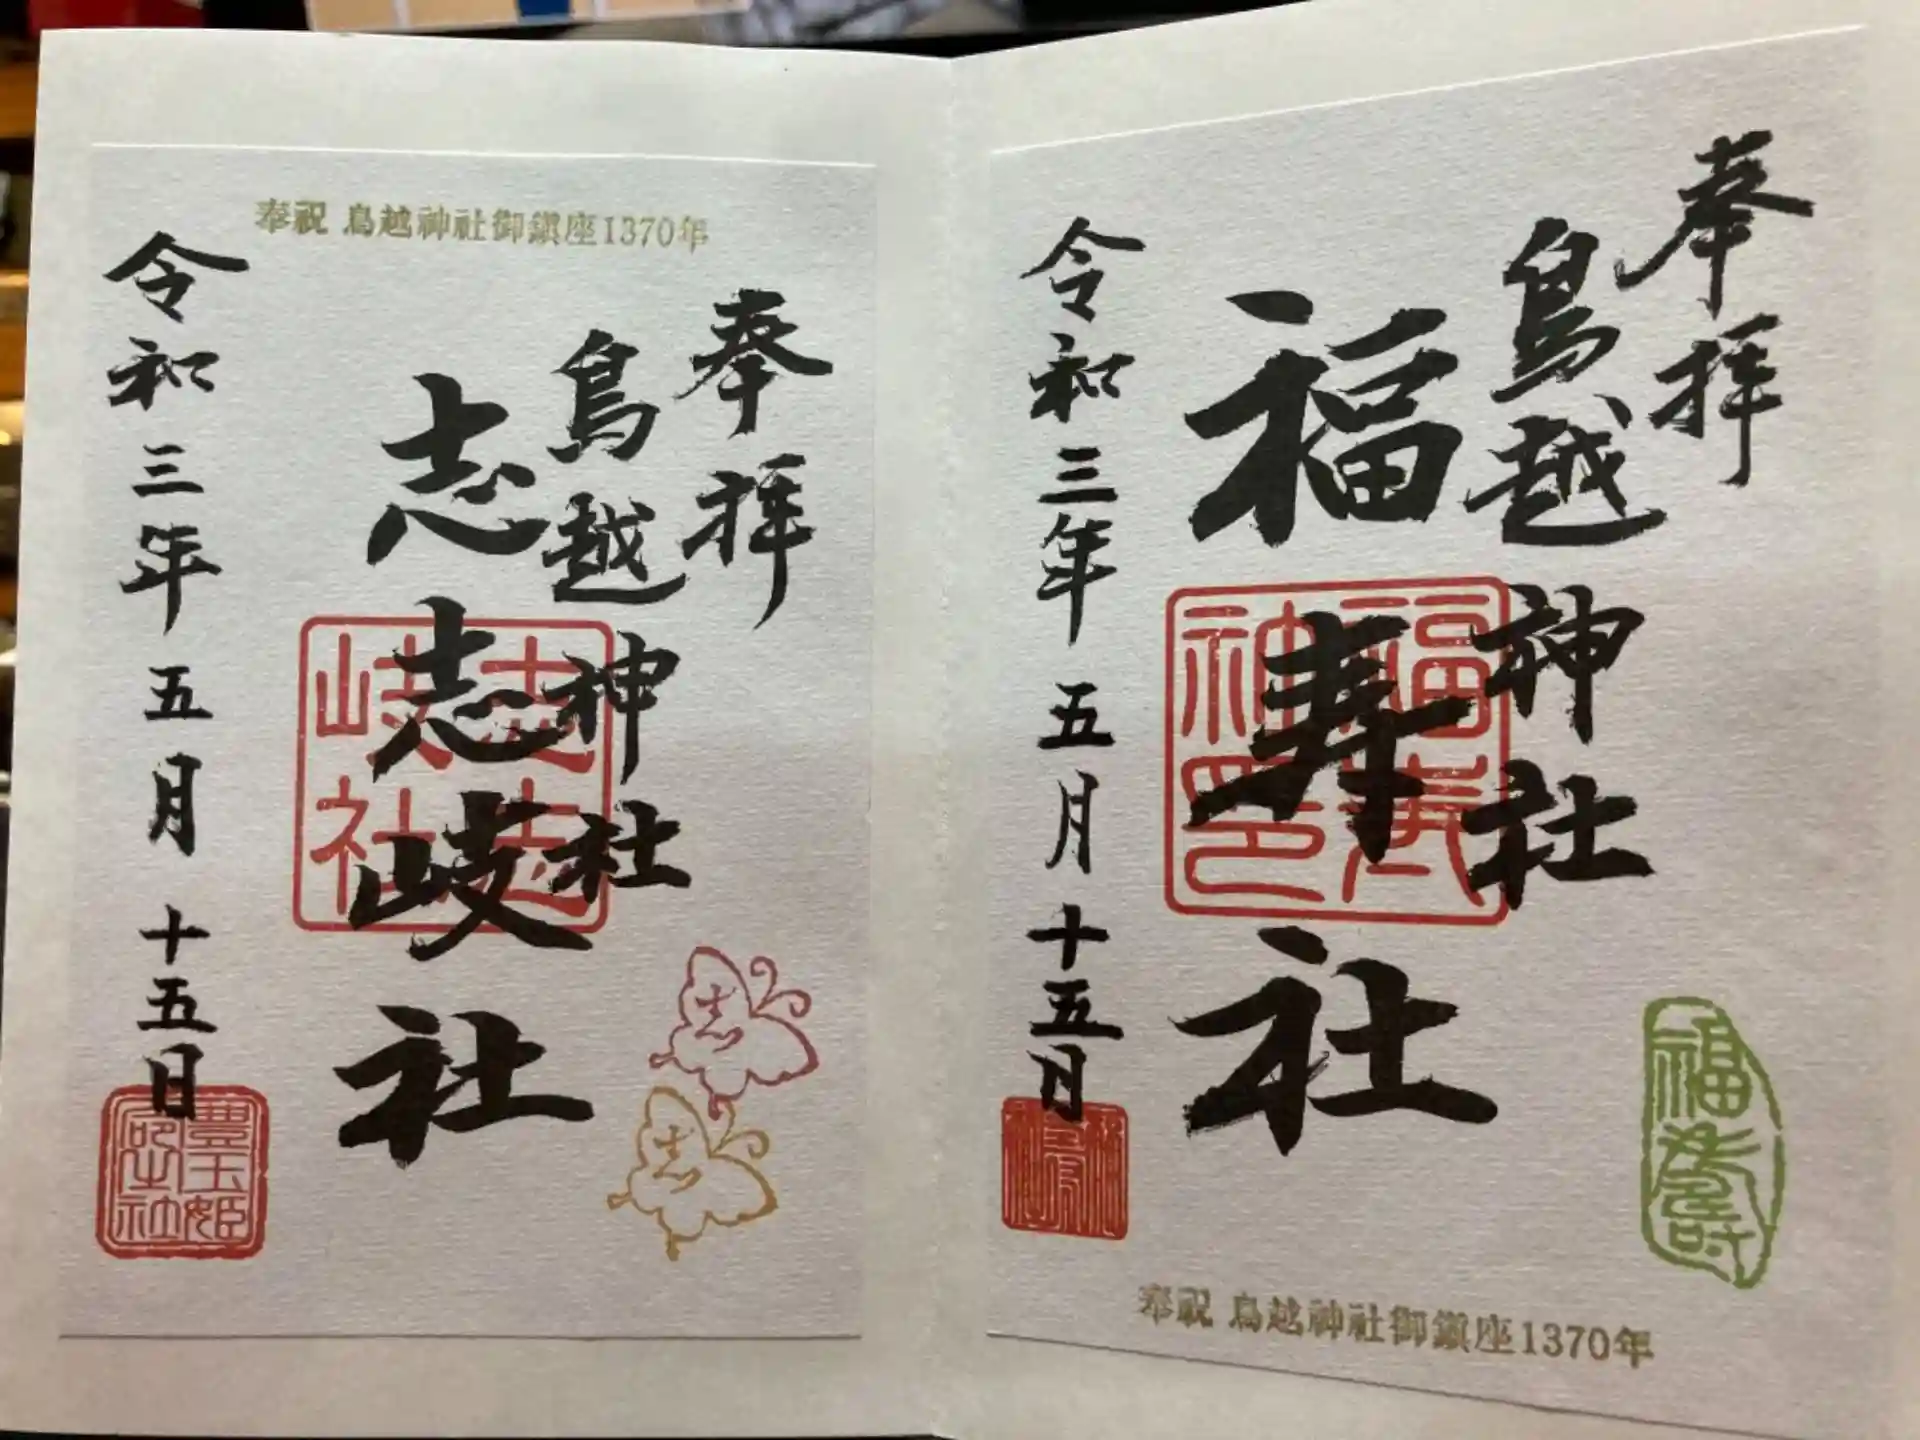 奉拝
鳥越神社
福寿社
令和三年五月十五日
福寿
神印
福
奉祝 鳥越神社御鎮座1370年
奉祝 鳥越神社御鎮座1370年
奉拝
鳥越神社
志志岐社
令和三年五月十五日
志志
岐社
志
志
豊玉姫
命之社